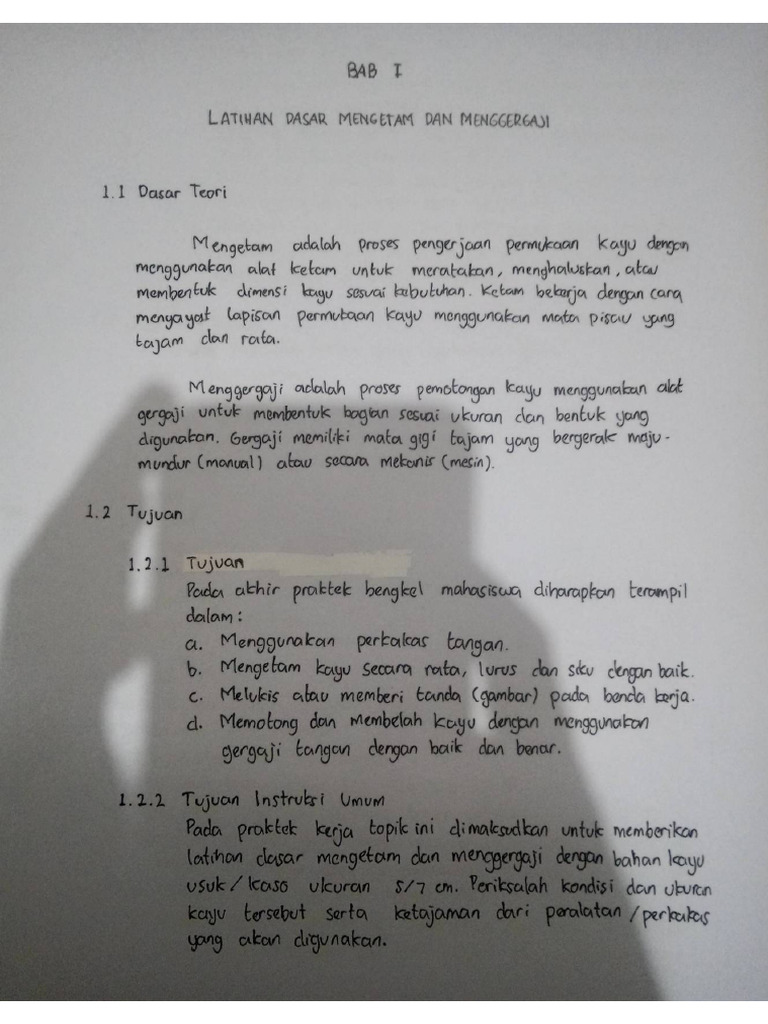 BAB I
LATIHAN DASAR MENGETAM DAN MENGGERGAJI
1.1 Dasar Teori
Mengetam adalah proses pengerjaan permukaan kayu dengan
menggunakan alat ketam untuk meratakan, menghaluskan, atau
membentuk dimensi kayu sesuai kebutuhan. Ketam bekerja dengan cara
menyayat lapisan permukaan kayu menggunakan mata pisau yang
tajam dan rata.
Menggergaji adalah proses pemotongan kayu menggunakan alat
gergaji untuk membentuk bagian sesuai ukuran dan bentuk yang
digunakan. Gergaji memiliki mata gigi tajam yang bergerak maju-
mundur (manual) atau secara mekanis (mesin).
1.2 Tujuan
1.2.1 Tujuan
Pada akhir praktek bengkel mahasiswa diharapkan terampil
dalam:
a. Menggunakan perkakas tangan.
b. Mengetam kayu secara rata, lurus dan siku dengan baik.
c. Melukis atau memberi tanda (gambar) pada benda kerja.
d. Memotong dan membelah kayu dengan menggunakan
gergaji tangan dengan baik dan benar.
1.2.2 Tujuan Instruksi Umum
Pada praktek kerja topik ini dimaksudkan untuk memberikan
latihan dasar mengetam dan menggergaji dengan bahan kayu
usuk/kaso ukuran 5/7 cm. Periksalah kondisi dan ukuran
kayu tersebut serta ketajaman dari peralatan/perkakas
yang akan digunakan.